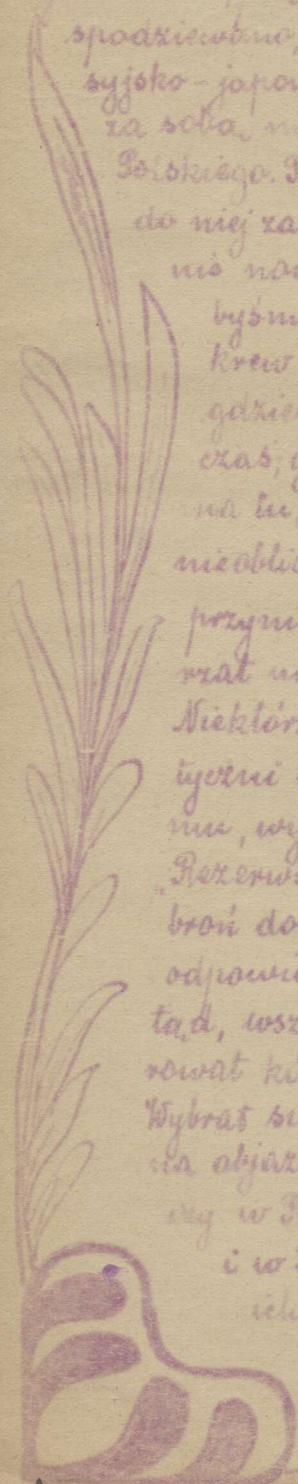 spodziewano,
syjsko-japoń
za sobą, n
Polskiego. P
do niej za
nis nar
byśm
krew
gdzie
czas, g
na tu
nieobli
przym
rzał u
Niektór
tyczni
mu, wy
„Rezerw
broń do
odpowi
tąd, wsz
rował k
Wybrał si
na objaz
czy w P
i w
ich